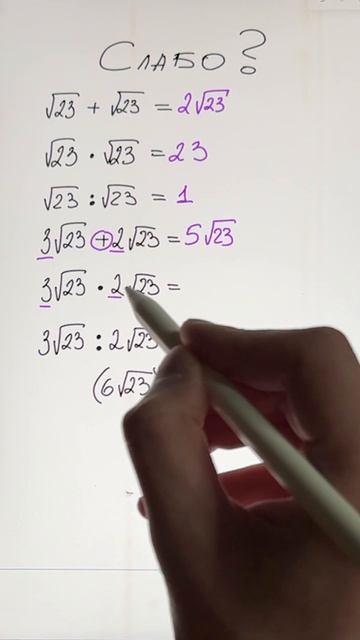 Слабо?
√23 + √23 = 2√23
√23 · √23 = 23
√23 : √23 = 1
3√23 + 2√23 = 5√23
3√23 · 2√23 =
3√23 : 2√23
(6√23